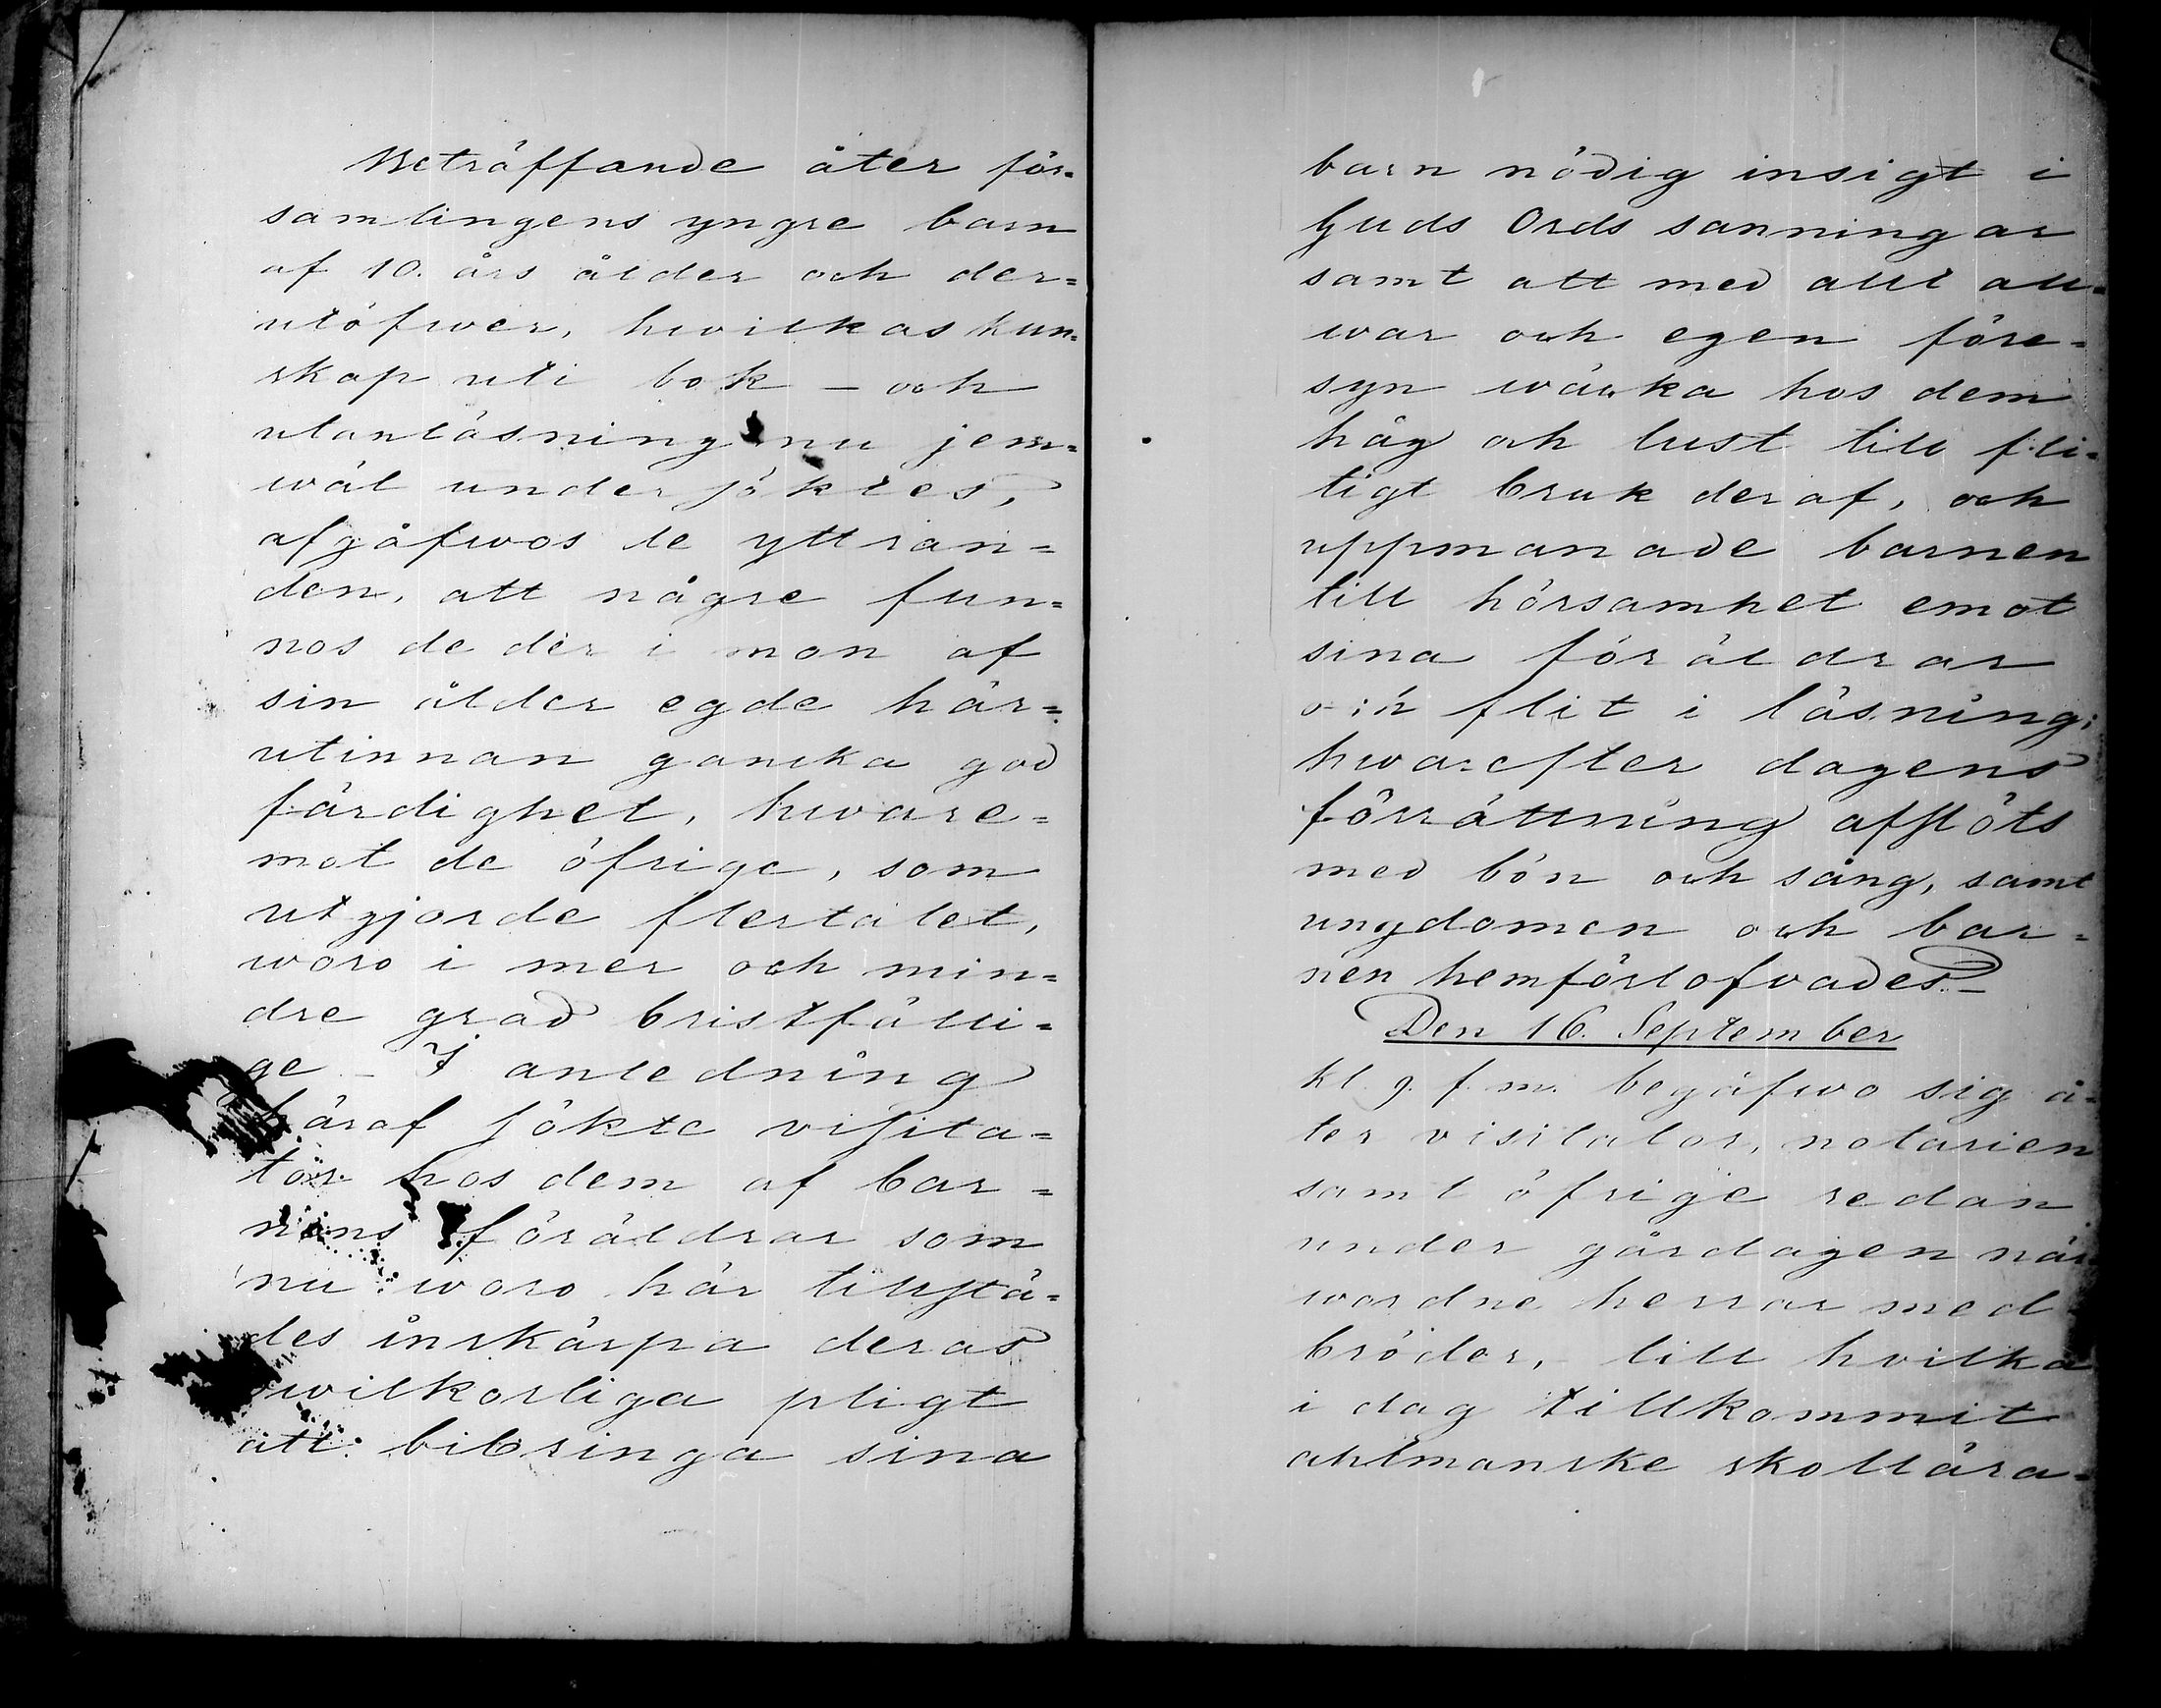 Beträffande åter för=
samlingens yngre barn
af 10. års ålder och der=
utöfwer, hwilkas kun=
skap uti bok – och
utanläsning nu jem=
wäl undersöktes,
afgåfwos te yttran=
den, att några fun=
nos de der i mon af
sin ålder egde här=
utinnan ganska god
färdighet, hware=
mot de öfrige, som
utgjorde flertalet,
woro i mer och min=
dre grad bristfälli=
ge – I anledning
häraf sökte visita=
tor hos dem af bar=
nens föräldrar som
nu woro här tillstä=
des inskärpa deras
owilkorliga pligt
att bibringa sina
barn nödig insigt i
Guds Ords sanningar
samt att med allt all=
war och egen före=
syn wäcka hos dem
håg och lust till fli=
tigt bruk deraf, och
uppmanade barnen
till hörsamhet emot
sina föräldrar
och flit i läsning;
hwarefter dagens
förrättning afslöts
med bön och sång, samt
ungdomen och bar=
nen hemförlofvades. –
Den 16. September
kl. 9. f. m. begåfwo sig å=
ter visitator, notarien
samt öfrige redan
under gårdagen när=
wordne herrar med=
bröder, till hvilka
i dag tillkommit
ahlmanske skollära=